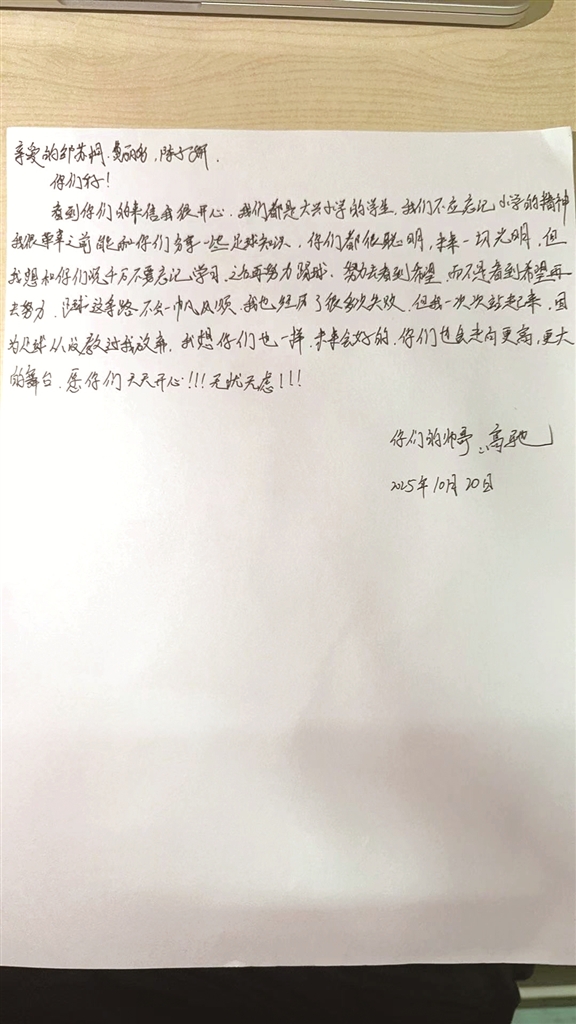 亲爱的邹苏桐、
你们好!
看到你们的来信我很开心、我们都是大兴小学的学生、我们不应忘记小学的精神
我很荣幸之前能和你们分享一些足球知识、你们都很聪明,未来一切光明,但
我想和你们说千万不要忘记学习、之后再努力踢球、努力去看到希望,而不是看到希望再
去努力、踢球这条路不会一帆风顺、我也经历了很多次失败、但我一次次站起来、因
为足球从没教过我放弃,我想你们也一样,未来会好的、你们也会走向更高,更大
的舞台、愿你们天天开心!!!无忧无虑!!!
你们的帅哥:高驰
2025年10月20日